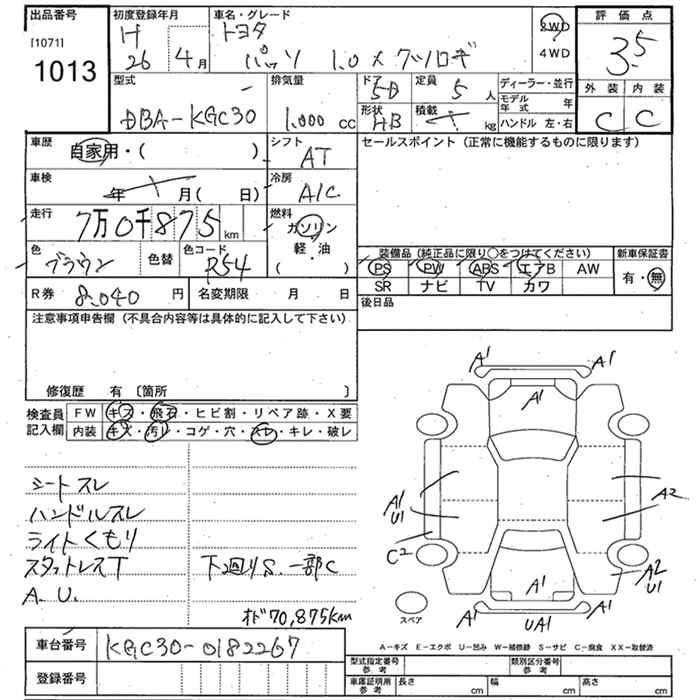 出品番号 初度登録年月 車名・グレード 評価点
[1071] H トヨタ 2WD
1013 26年4月 パッソ 1.0 X クツロギ 4WD 3.5
型式 排気量 ドア 5D 定員 5人 ディーラー・並行 外装 内装
DBA-KGC30 1,000cc 形状 HB 積載 kg モデル年式 年 C C
ハンドル 左・右
車歴 自家用・( ) シフト AT セールスポイント(正常に機能するものに限ります)
車検 年 月( 日) 冷房 A/C
走行 7万0千875km 燃料 ガソリン
色 ブラウン 色替 色コード R54 軽・油 ( ) 装備品(純正品に限り○をつけてください) 新車保証書
PS PW ABS エアB AW 有・無
R券 8.040円 名変期限 月 日 SR ナビ TV カワ
注意事項申告欄(不具合内容等は具体的に記入して下さい) 後日品
修復歴 有 〔箇所 〕
検査員 FW キズ・飛石・ヒビ割・リペア跡・X要
記入欄 内装 キズ・汚レ・コゲ・穴・スレ・キレ・破レ
A1 A1
A1
シートスレ
ハンドルスレ A1 U1 A2
ライトくもり C2
スタットレスT 下回りS.一部C A2 U1
A.U. A1 A1 A1
オド70,875km スペア UA1
車台番号 KGC30-0182267 A-キズ E-エクボ U-凹み W-補修跡 S-サビ C-腐食 XX-取替済
登録番号 型式指定番号 参考 類別区分番号 参考
車庫証明用 参考 長さ cm 幅 cm 高さ cm